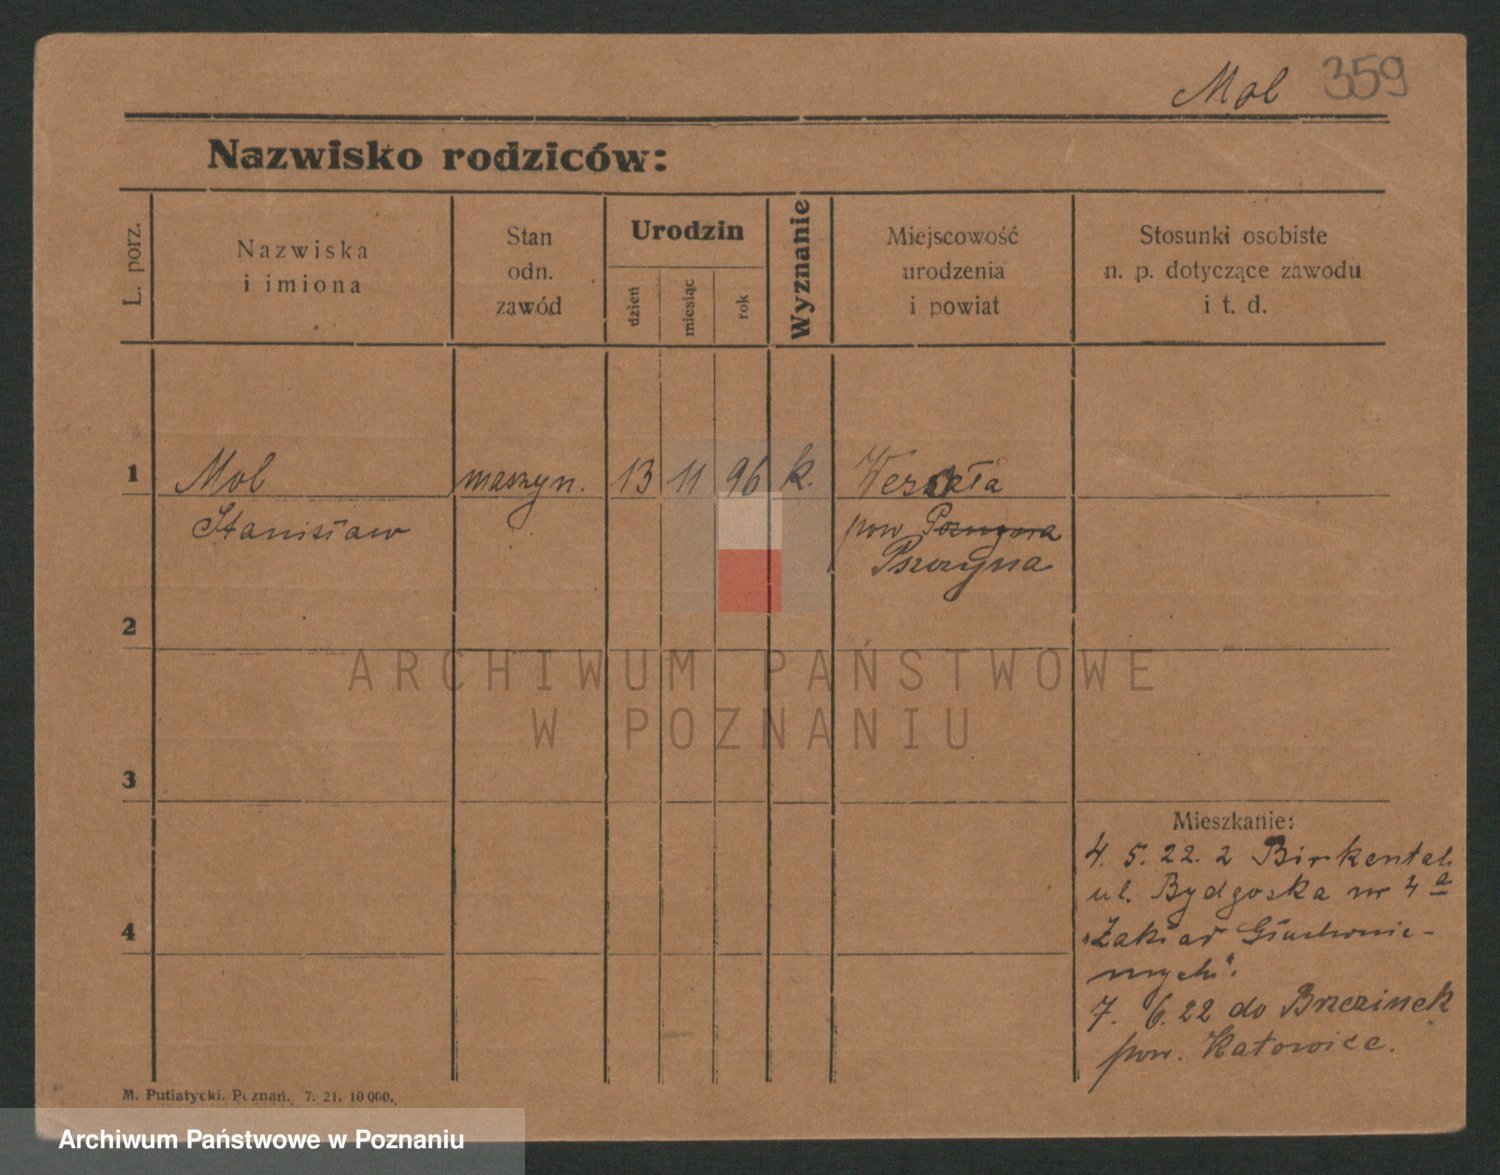 Mol 359
Nazwisko rodziców:
L. porz.
Nazwiska
i imiona
Stan
odn.
zawód
Urodzin
dzień
miesiąc
rok
Wyznanie
Miejscowość
urodzenia
i powiat
Stosunki osobiste
n. p. dotyczące zawodu
i t. d.
1 Mol maszyn. 13 11 96 k. Wesoła
Stanisław pow
Pszczyna
2
3
4
Mieszkanie:
4. 5. 22. z Birkental
ul. Bydgoska nr 4 a
„Zakład Głuchonie-
mych".
7. 6. 22 do Brzezinek
pow. Katowice.
M. Putiatycki. Poznań. 7. 21. 10 000.
ARCHIWUM PAŃSTWOWE
W POZNANIU
Archiwum Państwowe w Poznaniu